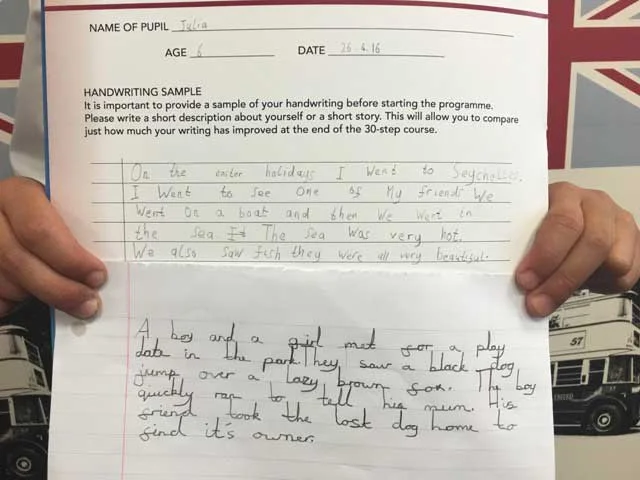 NAME OF PUPIL Julia
AGE 6 DATE 26.4.16
HANDWRITING SAMPLE
It is important to provide a sample of your handwriting before starting the programme.
Please write a short description about yourself or a short story. This will allow you to compare
just how much your writing has improved at the end of the 30-step course.
On the easter holidays I Went to Seychelles.
I Went to see One of My friends We
Went On a boat and then We Went in
the sea. It The Sea Was very hot.
We also saw fish they were all very beautiful.
A boy and a girl met for a play
date in the park. They saw a black dog
jump over a lazy brown fox. The boy
quickly ran to tell his mum. His
friend took the lost dog home to
find it's owner.
57